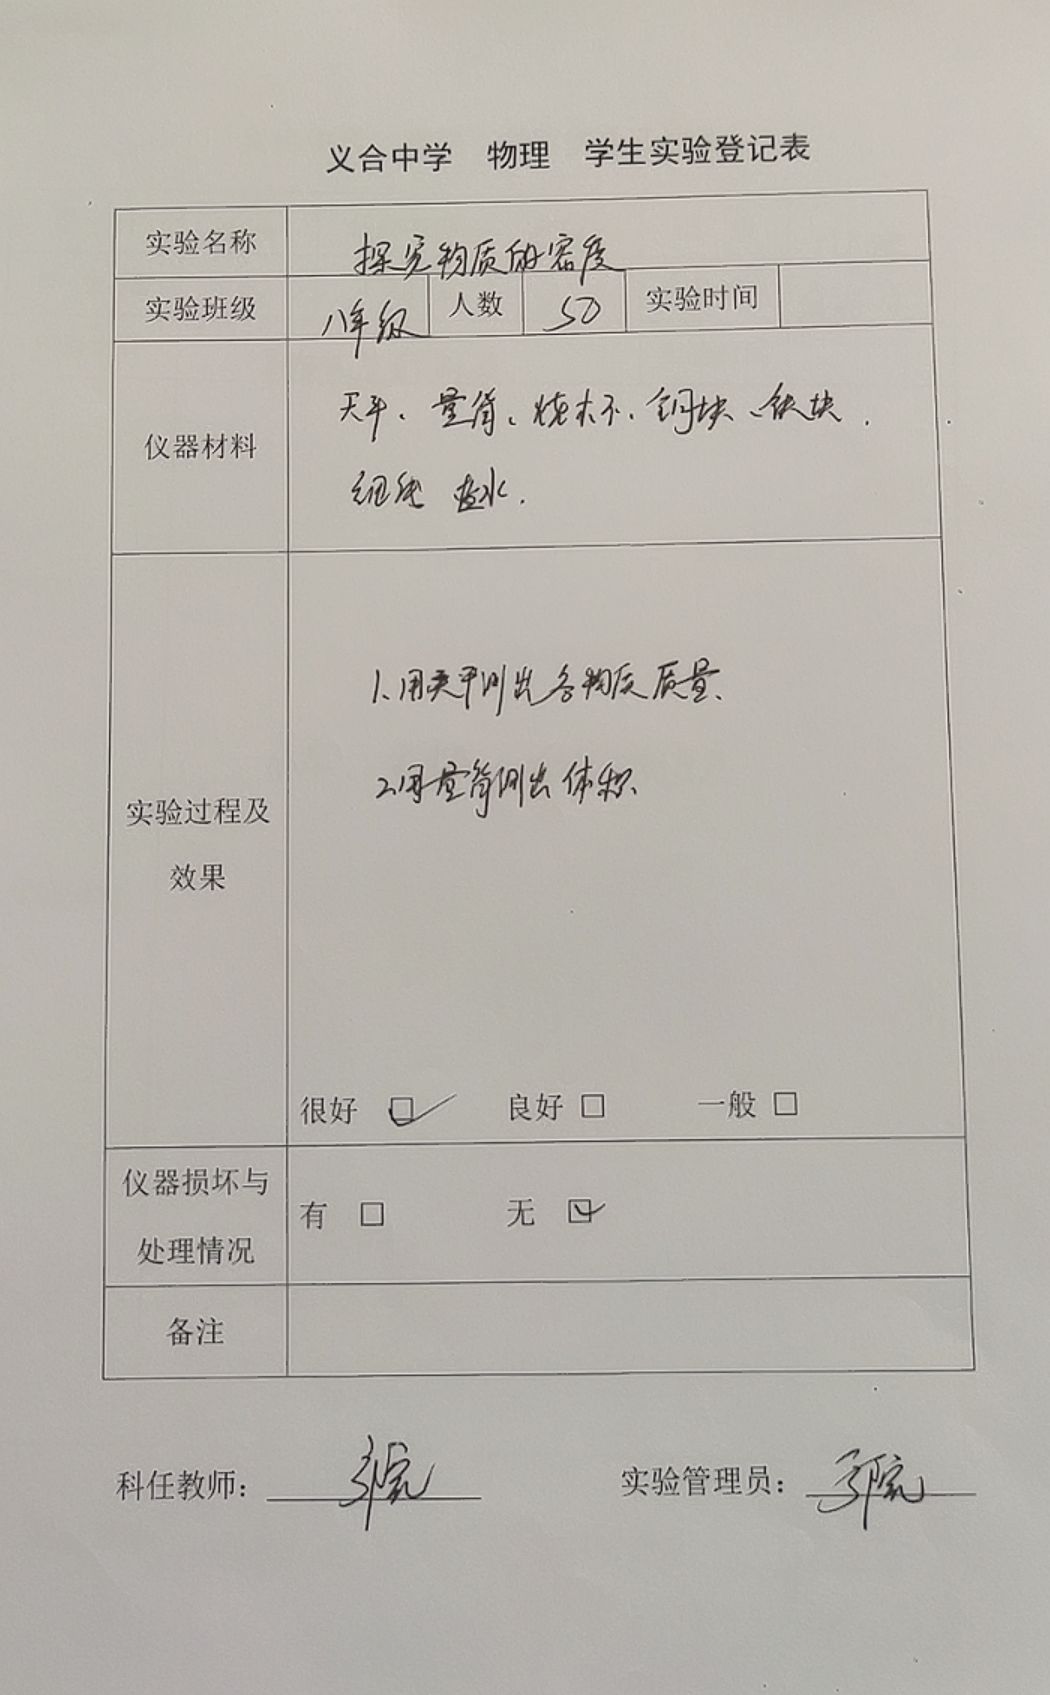 义合中学 物理 学生实验登记表
实验名称 探究物质的密度
实验班级 八年级 人数 50 实验时间
仪器材料 天平、量筒、烧杯、铜块、铁块、
细线 盐水.
1.用天平测出各物质质量、
2.用量筒测出体积、
实验过程及
效果
很好 ☑ 良好 □ 一般 □
仪器损坏与
处理情况
有 □ 无 ☑
备注
科任教师：
实验管理员：